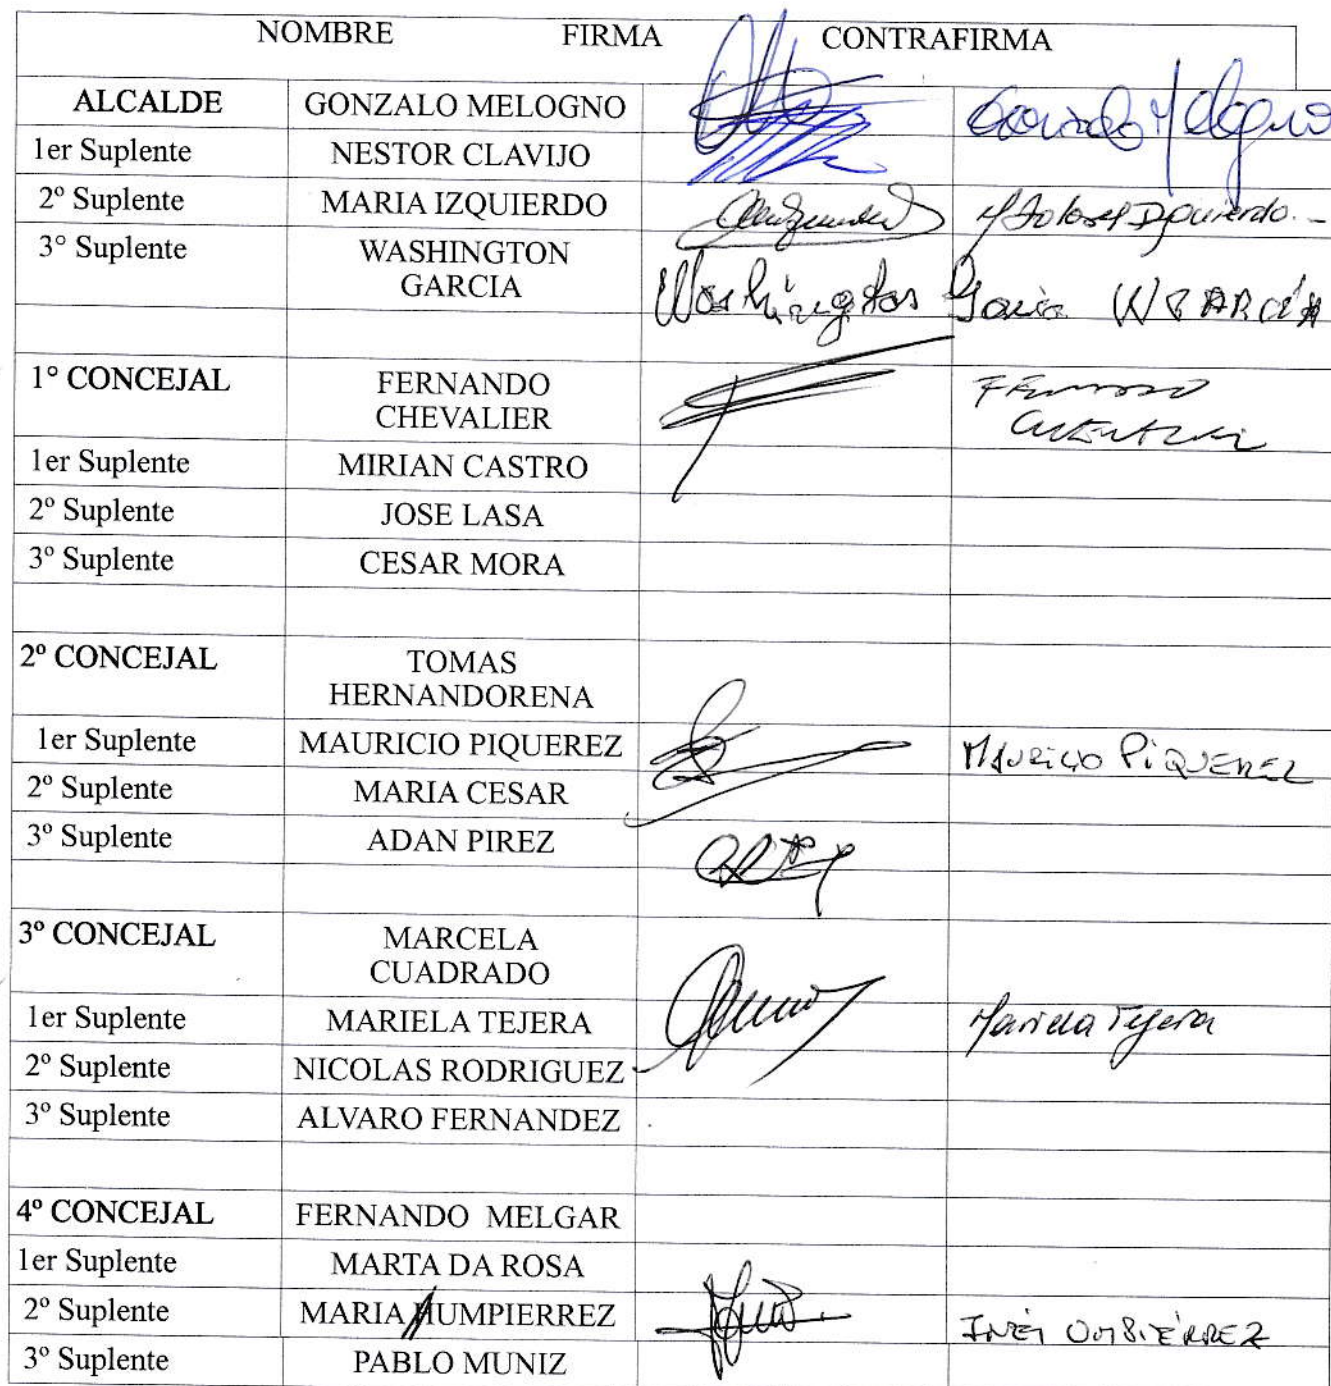 NOMBRE FIRMA CONTRAFIRMA
ALCALDE GONZALO MELOGNO Gonzalo Melogno
1er Suplente NESTOR CLAVIJO
2º Suplente MARIA IZQUIERDO M Dolores Izquierdo.-
3° Suplente WASHINGTON
GARCIA Washington Garcia W GARCÍA
1° CONCEJAL FERNANDO Fernando
CHEVALIER CHEVALIER
1er Suplente MIRIAN CASTRO
2º Suplente JOSE LASA
3º Suplente CESAR MORA
2º CONCEJAL TOMAS
HERNANDORENA
1er Suplente MAURICIO PIQUEREZ MAURICIO PIQUEREZ
2º Suplente MARIA CESAR
3º Suplente ADAN PIREZ
3º CONCEJAL MARCELA
CUADRADO
1er Suplente MARIELA TEJERA Mariela Tejera
2º Suplente NICOLAS RODRIGUEZ
3º Suplente ALVARO FERNANDEZ
4º CONCEJAL FERNANDO MELGAR
1er Suplente MARTA DA ROSA
2º Suplente MARIA UMPIERREZ INÉS UMPIÉRREZ
3º Suplente PABLO MUNIZ